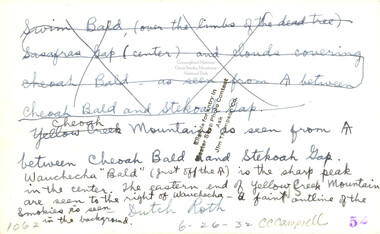 Swim Bald, (over the limbs of the dead tree)
Sasafras Gap (center) and clouds covering
cheoah Bald - as seen from AT between
Cheoah Bald and Stekoah Gap.
Cheoah
Yellow Creek Mountain as seen from AT
between Cheoah Bald and Stekoah Gap.
Wauchecha "Bald" (just off the AT) is the sharp peak
in the center. The eastern end of Yellow Creek Mountain
are seen to the right of Wauchecha - a faint outline of the
Smokies is seen
in the background.
Dutch Roth
1062
6-26-32
CCCampbell
52